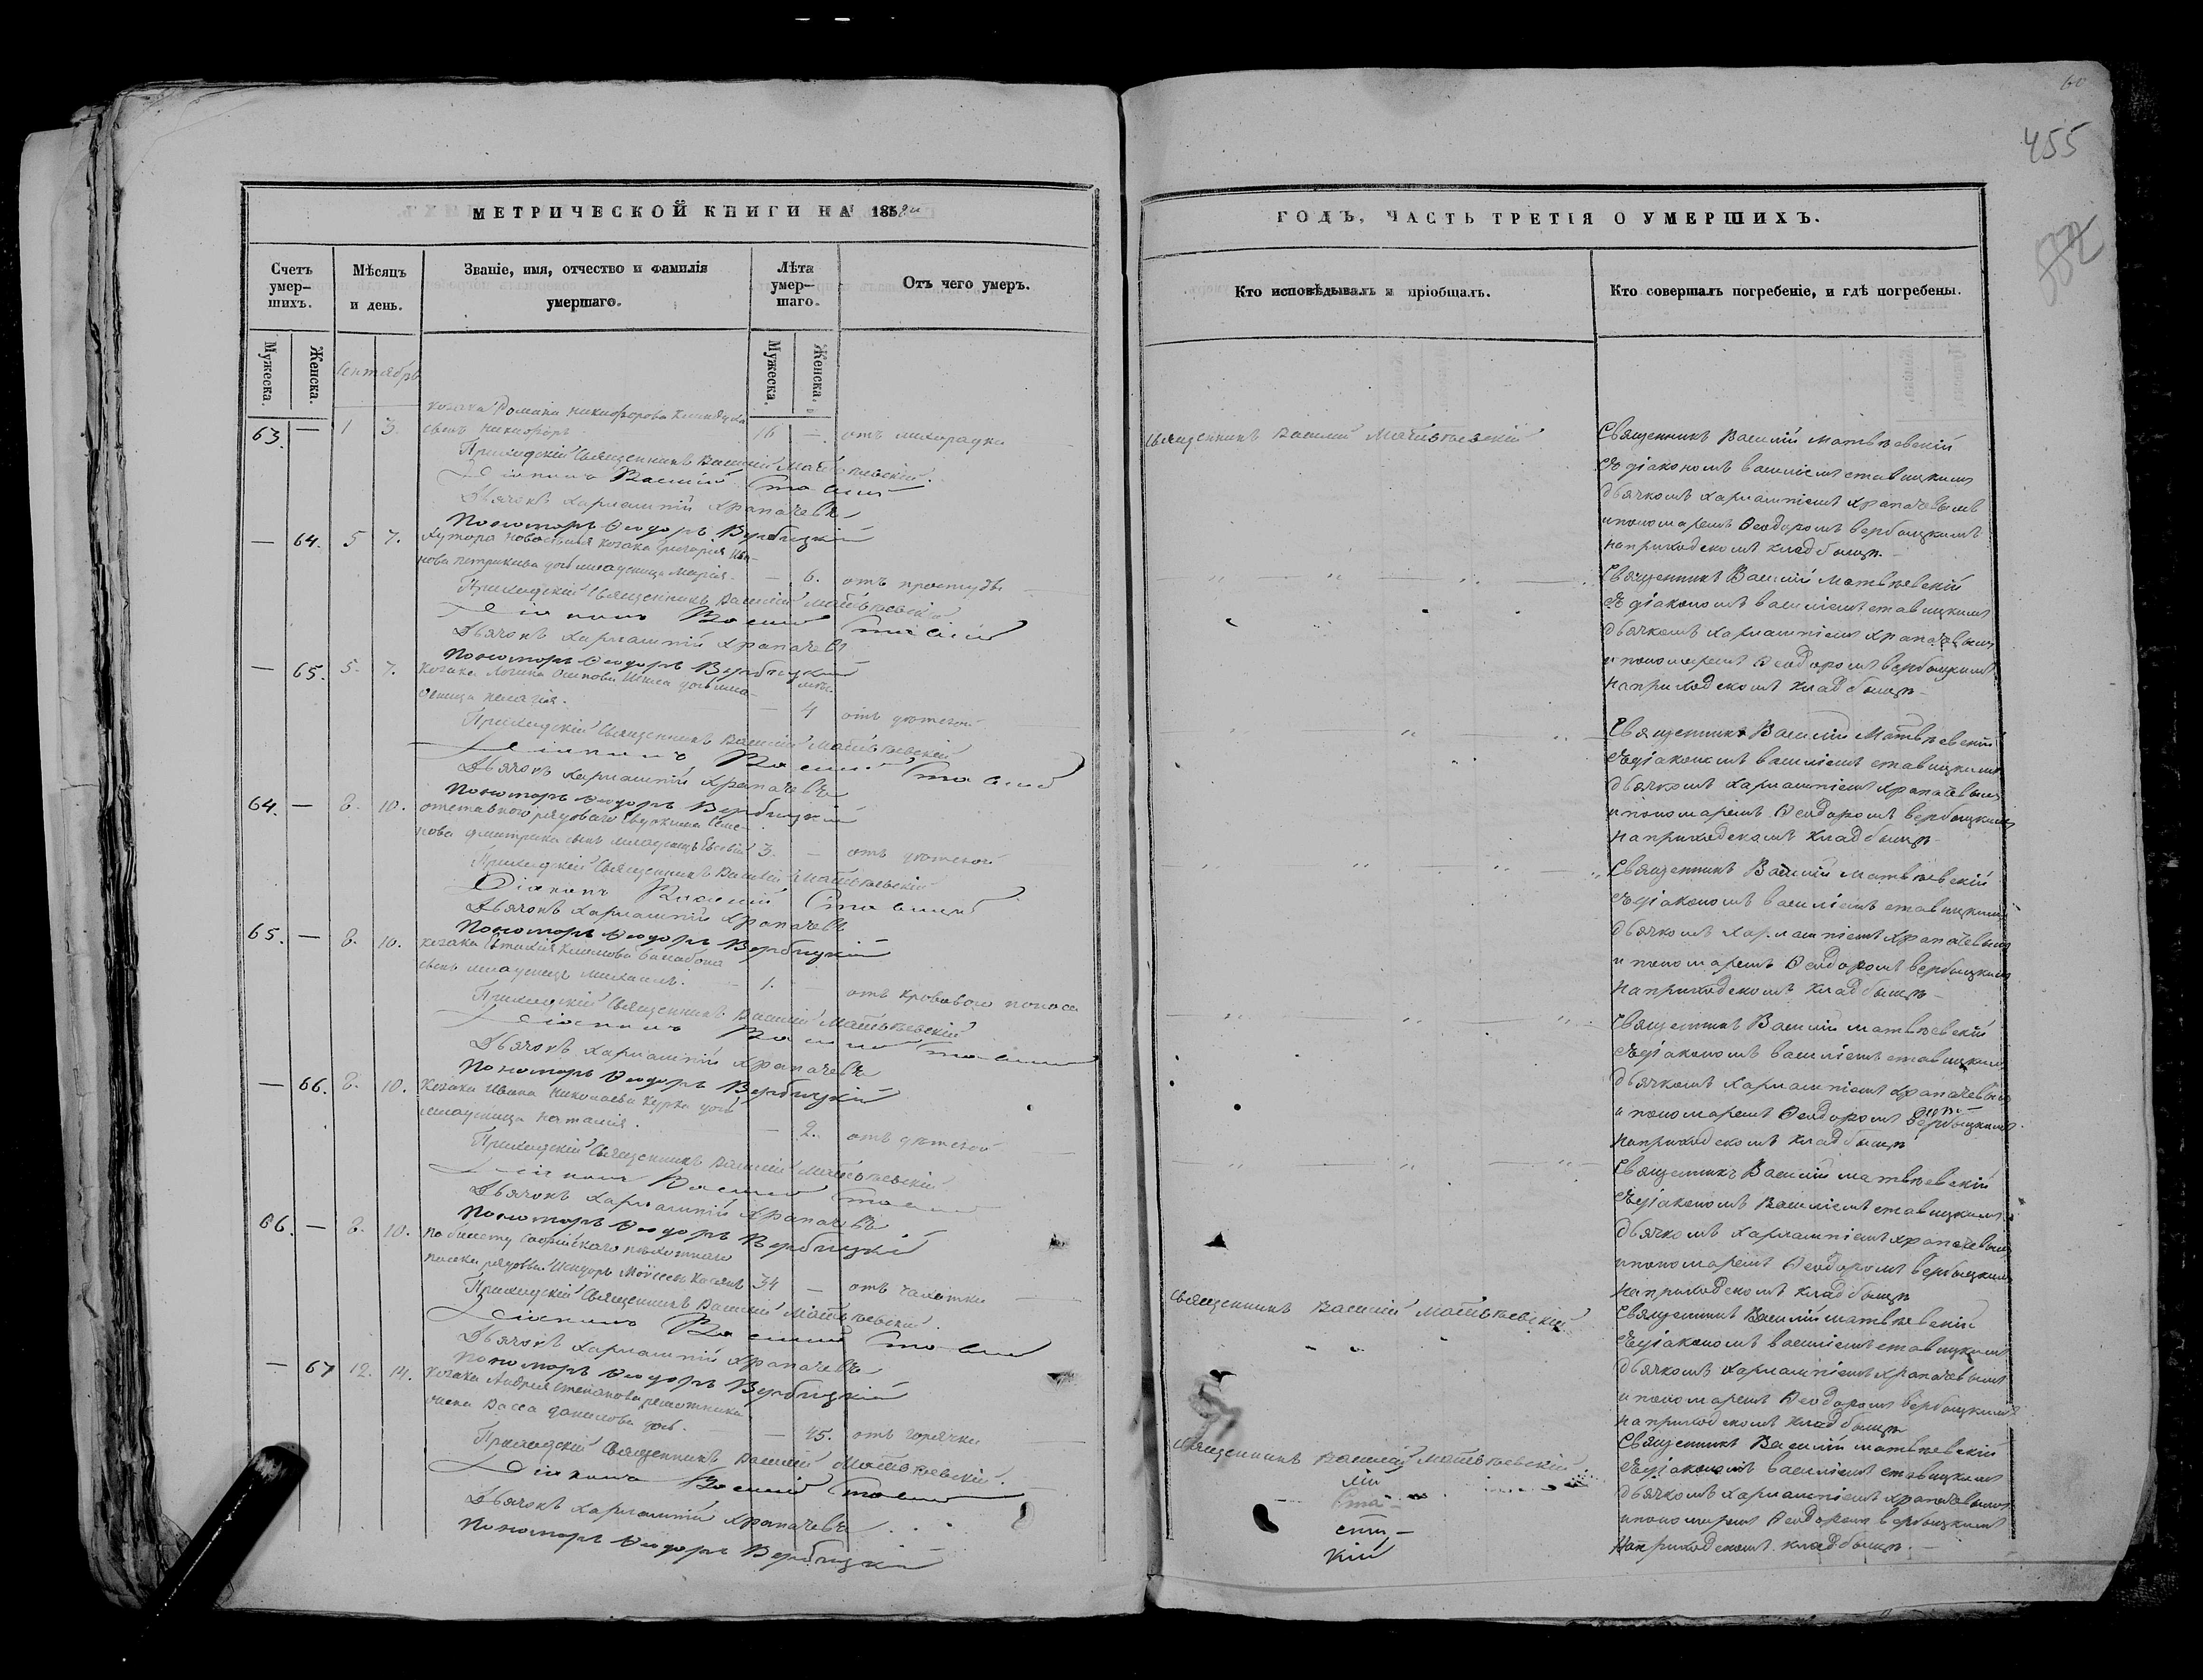 60
455
552
МЕТРИЧЕСКОЙ КНИГИ НА 1858й
Счетъ умер-шихъ.
Мѣсяцъ и день.
Званіе, имя, отчество и фамилія умершаго.
Лѣта умер-шаго.
Отъ чего умеръ.
Мужеска.
Женска.
Сентябрь
Мужеска.
Женска.
козака Романа Никифорова
63. — 1 3. сынъ Никифоръ 16 — отъ лихорадки
Приходскій Священникъ Василій Матвѣевскій.
Діаконъ Василій
Дьячокъ Харлампій Храпачевъ
Пономарь Ѳеодоръ Вербицкій
— 64. 5 7. Хутора козака Григорія Ива-
нова дочь младеница Марія — 6. отъ простуды
Приходскій Священникъ Василій Матвѣевскій
Діаконъ Василій
Дьячокъ Харлампій Храпачевъ
Пономарь Ѳеодоръ Вербицкій
— 65. 5. 7. козака Логина Осипова дочь мла-
деница Пелагія. — 4 отъ
Приходскій Священникъ Василій Матвѣевскій
Діаконъ Василій
Дьячокъ Харлампій Храпачевъ
Пономарь Ѳеодоръ Вербицкій
64. — 8. 10. отставного рядового Семе-
нова Дмитрика сынъ младенецъ 3. — отъ
Приходскій Священникъ Василій Матвѣевскій
Діаконъ Василій
Дьячокъ Харлампій Храпачевъ
Пономарь Ѳеодоръ Вербицкій
65. — 8. 10. козака Климова
сынъ младенецъ Михаилъ. 1. — отъ кроваваго поноса
Приходскій Священникъ Василій Матвѣевскій
Діаконъ Василій
Дьячокъ Харлампій Храпачевъ
Пономарь Ѳеодоръ Вербицкій
— 66. 8. 10. козака Ивана Николаева Курка дочь
младеница Наталія. — 2. отъ
Приходскій Священникъ Василій Матвѣевскій
Діаконъ Василій
Дьячокъ Харлампій Храпачевъ
Пономарь Ѳеодоръ Вербицкій
66. — 8. 10. по билету Софійскаго пѣхотнаго
полка рядовый Моѵсеевъ 34 — отъ чахотки
Приходскій Священникъ Василій Матвѣевскій.
Діаконъ Василій
Дьячокъ Харлампій Храпачевъ
Пономарь Ѳеодоръ Вербицкій
— 67 12. 14. козака Андрея Степанова
жена Васса Данилова дочь. — 45. отъ горячки
Приходскій Священникъ Василій Матвѣевскій.
Діаконъ Василій
Дьячокъ Харлампій Храпачевъ
Пономарь Ѳеодоръ Вербицкій
ГОДЪ, ЧАСТЬ ТРЕТІЯ О УМЕРШИХЪ.
Кто исповѣдывалъ и пріобщалъ.
Кто совершалъ погребеніе, и гдѣ погребены.
Священникъ Василій Матвѣевскій
Священникъ Василій Матвѣевскій
съ діакономъ Василіемъ Ставицкимъ
дьячкомъ Харлампіемъ Храпачевымъ
и пономаремъ Ѳеодоромъ Вербицкимъ
на приходскомъ кладбищѣ
Священникъ Василій Матвѣевскій
съ діакономъ Василіемъ Ставицкимъ
дьячкомъ Харлампіемъ Храпачевымъ
и пономаремъ Ѳеодоромъ Вербицкимъ
на приходскомъ кладбищѣ
Священникъ Василій Матвѣевскій
съ діакономъ Василіемъ Ставицкимъ
дьячкомъ Харлампіемъ Храпачевымъ
и пономаремъ Ѳеодоромъ Вербицкимъ
на приходскомъ кладбищѣ
Священникъ Василій Матвѣевскій
съ діакономъ Василіемъ Ставицкимъ
дьячкомъ Харлампіемъ Храпачевымъ
и пономаремъ Ѳеодоромъ Вербицкимъ
на приходскомъ кладбищѣ
Священникъ Василій Матвѣевскій
съ діакономъ Василіемъ Ставицкимъ
дьячкомъ Харлампіемъ Храпачевымъ
и пономаремъ Ѳеодоромъ Вербицкимъ
на приходскомъ кладбищѣ
Священникъ Василій Матвѣевскій
съ діакономъ Василіемъ Ставицкимъ
дьячкомъ Харлампіемъ Храпачевымъ
и пономаремъ Ѳеодоромъ Вербицкимъ
на приходскомъ кладбищѣ
Священникъ Василій Матвѣевскій
Священникъ Василій Матвѣевскій
съ діакономъ Василіемъ Ставицкимъ
дьячкомъ Харлампіемъ Храпачевымъ
и пономаремъ Ѳеодоромъ Вербицкимъ
на приходскомъ кладбищѣ
Священникъ Василій Матвѣевскій
лій
Ста-
кій
Священникъ Василій Матвѣевскій
съ діакономъ Василіемъ Ставицкимъ
дьячкомъ Харлампіемъ Храпачевымъ
и пономаремъ Ѳеодоромъ Вербицкимъ
на приходскомъ кладбищѣ.